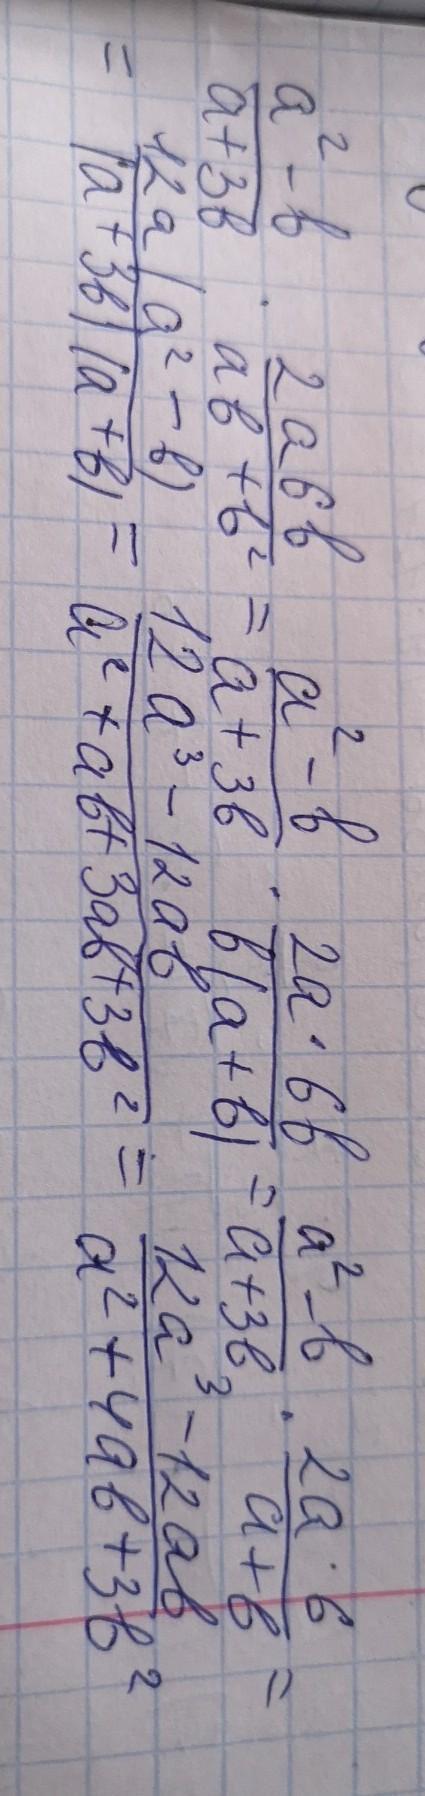 a² - b / a + 3b · 2a6b / ab + b² = a² - b / a + 3b · 2a · 6b / b(a + b) = a² - b / a + 3b · 2a · 6 / a + b =
= 12a(a² - b) / (a + 3b)(a + b) = 12a³ - 12ab / a² + ab + 3ab + 3b² = 12a³ - 12ab / a² + 4ab + 3b²